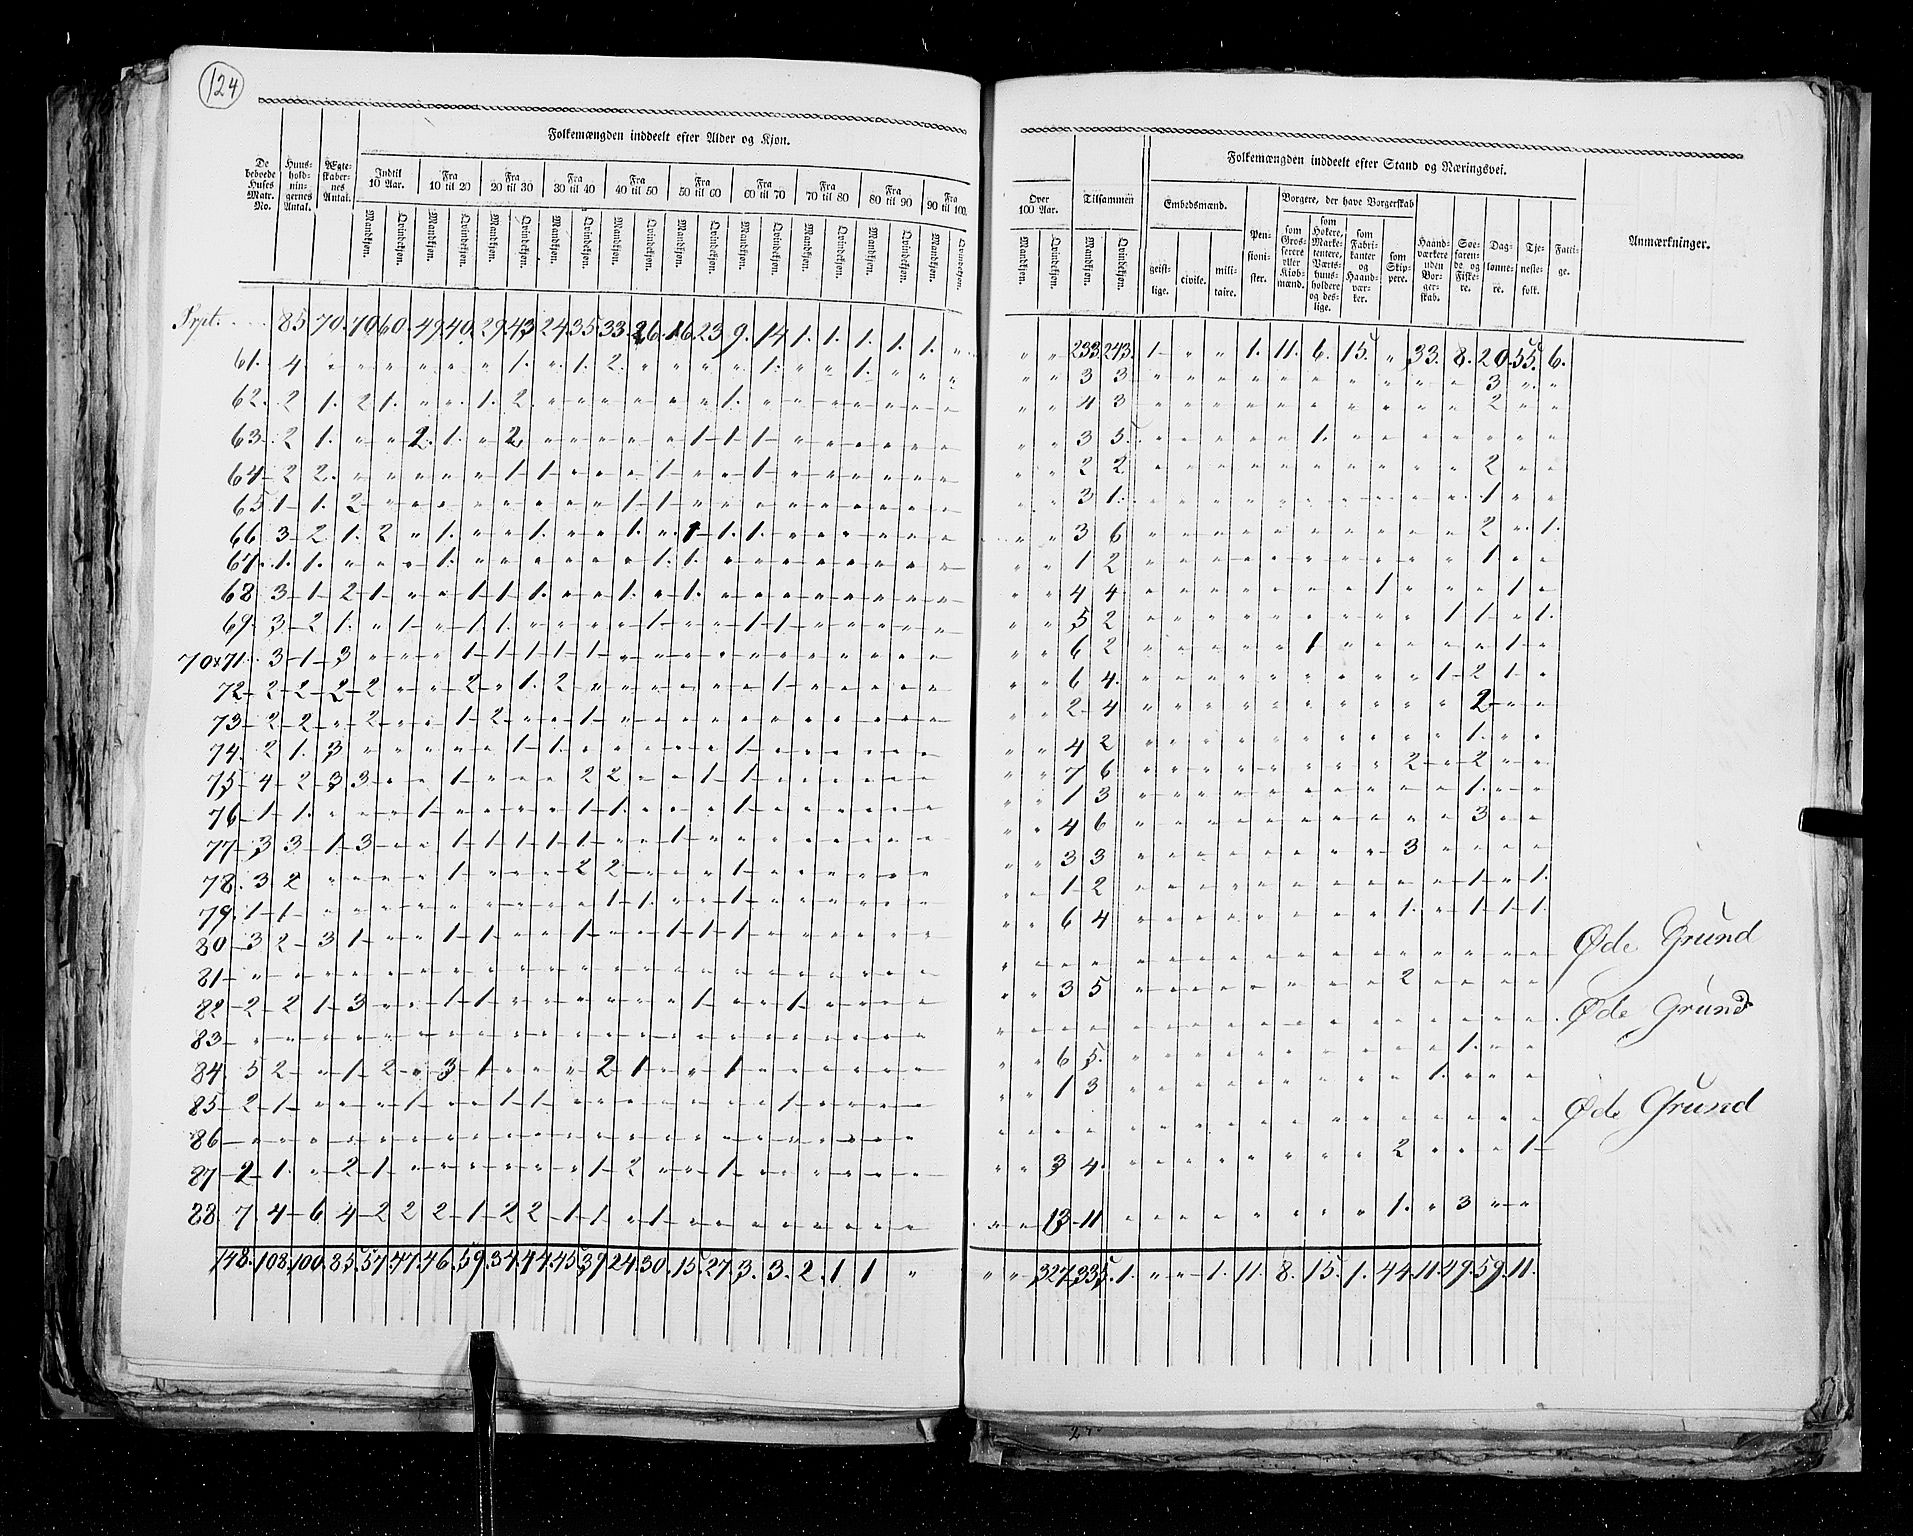 124
Folkemængden inddeelt efter Alder og Kjøn.
De beboede Huses Matr. No. Huusholdningernes Antal. Ægteskabernes Antal. Indtil 10 Aar. Fra 10 til 20 Fra 20 til 30 Fra 30 til 40 Fra 40 til 50 Fra 50 til 60 Fra 60 til 70 Fra 70 til 80 Fra 80 til 90 Fra 90 til 100.
Mandkjøn. Qvindekjøn. Mandkjøn. Qvindekjøn. Mandkjøn. Qvindekjøn. Mandkjøn. Qvindekjøn. Mandkjøn. Qvindekjøn. Mandkjøn. Qvindekjøn. Mandkjøn. Qvindekjøn. Mandkjøn. Qvindekjøn. Mandkjøn. Qvindekjøn. Mandkjøn. Qvindekjøn.
Trpt. 85 70. 70 60. 49. 40. 29. 43 24. 35. 33. 26. 16. 23 9. 14 1. 1. 1. 1. 1. "
61. 4 " " " " " " 1. " 1. 2. " " " " 1. " " 1. " " "
62. 2 1. 2 1. " " 1. 2 " " " " " " 1. " " " " " " "
63 2 1. " " 2. 1. " 2 " " " " " 1 1 1 " " " " " "
64 2 2. " " " " " 1 1 " " " 1 " " 1 " " " " " "
65 1 1. 2 " " " " " " " " 1 1 " " " " " " " " "
66 3 2 1. 2 " 1. " " 1. " " 1. " 1 1. 1. " " " " " "
67. 1. 1. " " " 1. " " " " " " 1. 1. " " " " " " " "
68 3 1 2 1 " " 1 1 1. " " 1. " 1. " " " " " " " "
69. 3 2 1. " 1 " 1 1. " " " " 1 " " " 1 1 " " " "
70 x 71. 3 1 3 " " " 1 1 1 1 1 " " " " " " " " " " "
72 2 2 2 2 " " 2 " 1. 2 " " " " " " 1 " " " " "
73 2 2 " 2 " " 1 2 " " 1 " " " " " " " " " " "
74. 2 1. 3 " " " " " 1 1. " " " " " 1 " " " " " "
75 4 2 3 3 " " 1 " " " 2 2 " " 1 1 " " " " " "
76 1 1. " " " 1 " " " " 1 1. " " " 1 " " " " " "
77 3 3 1 3 " " 1 1 1 1 1 " " 1 " " " " " " " "
78. 3 2 " " " " 1 " " " 2 2 " " " 1 " " " " " "
79. 1 1 " " " " " " " " " 1 1. " " 1 " " " " " "
80 3 2 3 1 " " 1 1 " " 1 " " 1 1 1 " " " " " "
81 " " " " " " " " " " " " " " " " " " " " " "
82 2 2 1 3 " " 1 1 " " " " " " 1 " " 1 " " " "
83 " " " " " " " " " " " " " " " " " " " " " "
84. 5 2 " 1 2 " 3 1 " " " 2 1 " " 1 " " " " " "
85 2 1 " " " 1 " " 1 1 " " " " " " " 1 " " " "
86 " " " " " " " " " " " " " " " " " " " " " "
87 2 1. " 2 1 " " " " " " 1 2 " " 1 " " " " " "
88. 7 4 6 4 2 2 2 1 2 2 1 1 " 1 " " " " " " " "
148. 108. 100. 85. 57. 47. 46. 59. 34. 44. 45. 39 24. 30. 15. 27. 3. 3. 2. 1 1 "
Over 100 Aar. Tilsammen Folkemængden inddeelt efter Stand og Næringsvei.
Embedsmænd. Pensionister. Borgere, der have Borgerskab Haandværkere uden Borgerskab. Søefarende og Fiskere. Daglønnere. Tjenestefolk. Fattige. Anmærkninger.
Mandkjøn. Qvindekjøn. Mandkjøn. Qvindekjøn. geistlige. civile. militaire. som Grosserere eller Kjøbmænd. som Høkere, Marketentere, Værtshuusholdere og deslige. som Fabrikanter og Haandværker. som Skippere.
" " 233 243. 1 " " 1. 11. 6. 15. " 33. 8. 20. 55. 6.
" " 3 3 " " " " " " " " " " 3 " "
" " 4 3 " " " " " " " " " " 2 " "
" " 3 5. " " " " " 1. " " " " " " "
" " 2 2 " " " " " " " " " " 2 " "
" " 3 1. " " " " " " " " " " 1 " "
" " 3 6 " " " " " " " " " " 2 " 1.
" " 1 2 " " " " " " " " " " 1 " "
" " 4 4 " " " " " " " 1. " " " 1 "
" " 5 2 " " " " " " " " " 1 1 " 1.
" " 6 2 " " " " " 1 " " " " " 1 "
" " 6 4. " " " " " " " " " 1 2 1 "
" " 2 4 " " " " " " " " " " 2 " "
" " 4 2 " " " " " " " " " " 1. " "
" " 7 6 " " " " " " " " 2 " 2 " "
" " 1 3 " " " " " " " " " " 1. " "
" " 4 6 " " " " " " " " " " 3 " "
" " 3 3 " " " " " " " " 3 " " " "
" " 1 2 " " " " " " " " " " 1 " 1.
" " 6 4 " " " " " " " " 1. " 1 1 1.
" " " " " " " " " " " " " " " " " Øde Grund
" " 3 5 " " " " " " " " 2 " " " "
" " " " " " " " " " " " " " " " " Øde Grund
" " 6 5. " " " " " " " " " " 1. " "
" " 1 3 " " " " " " " " " 1. " " "
" " " " " " " " " " " " " " " " " Øde Grund
" " 3 4. " " " " " " " " 2 " " " 1
" " 13 11 " " " " " " " " 1. " 3 " "
" " 327. 335. 1. " " 1. 11. 8. 15. 1. 44. 11. 49. 59. 11.